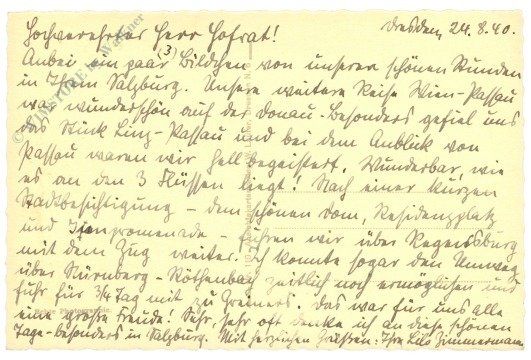 Dresden, 24.8.40.
Hochverehrter Herr Hofrat!
Anbei ein paar (3) Bildchen von unseren schönen Stunden
in Ihrem Salzburg. Unsere weitere Reise Wien-Passau
war wunderschön auf der Donau. Besonders gefiel uns
das Stück Linz-Passau und bei dem Anblick von
Passau waren wir hell begeistert. Wunderbar, wie
es an den 3 Flüssen liegt! Nach einer kurzen
Stadtbesichtigung – dem schönen Dom, Residenzplatz
und Innpromenade – fuhren wir über Regensburg
mit dem Zug weiter. Ich konnte sogar den Umweg
über Nürnberg-Röthenbach zeitlich noch ermöglichen und
fuhr für 3/4 Tag mit zu Greiners. Das war für uns alle
eine große Freude! Sehr, sehr oft denke ich an diese schönen
Tage - besonders in Salzburg. Mit herzlichen Grüßen: Ihre Lilo Zimmermann